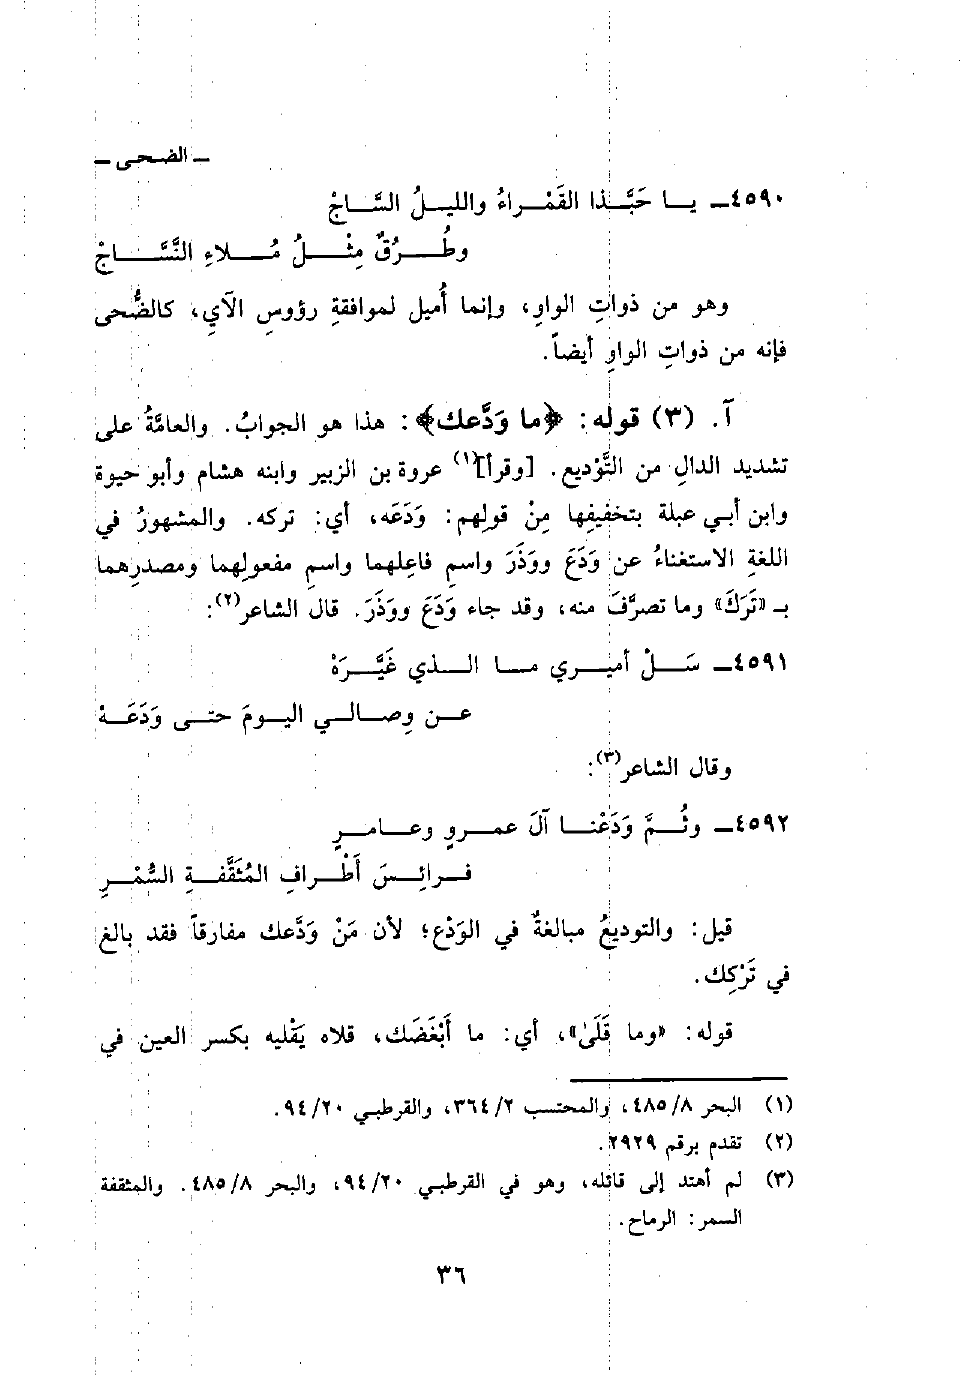 ـ الضحى ـ
٤٥٩٠ـ يا حَبَّذا القَمْراءُ والليلُ السَّاجْ
وطُرُقٌ مِثْلُ مُلاءِ النَّسَّاجْ
وهو من ذواتِ الواوِ، وإنما أُميل لموافقةِ رؤوسِ الآيِ، كالضُّحى
فإنه من ذواتِ الواوِ أيضاً.
آ. (٣) قوله: ﴿ما وَدَّعك﴾: هذا هو الجوابُ. والعامَّةُ على
تشديد الدالِ من التَّوْديع. [وقرأ](١) عروة بن الزبير وابنه هشام وأبو حيوة
وابن أبي عبلة بتخفيفِها مِنْ قولِهم: وَدَعَه، أي: تركه. والمشهورُ في
اللغةِ الاستغناءُ عن وَدَعَ ووَذَرَ واسمِ فاعِلهما واسمِ مفعولِهما ومصدرِهما
بـ «تَرَكَ» وما تصرَّفَ منه، وقد جاء وَدَعَ ووَذَرَ. قال الشاعر(٢):
٤٥٩١ـ سَلْ أميري ما الذي غَيَّرَهْ
عن وِصالي اليومَ حتى وَدَعَهْ
وقال الشاعر(٣):
٤٥٩٢ـ وثُمَّ وَدَعْنا آلَ عمروٍ وعامرٍ
فرائِسَ أَطْرافِ المُثَقَّفةِ السُّمْرِ
قيل: والتوديعُ مبالغةٌ في الوَدْع؛ لأن مَنْ وَدَّعك مفارقاً فقد بالغ
في تَرْكِك.
قوله: «وما قَلَىٰ»، أي: ما أَبْغَضَك، قلاه يَقْليه بكسر العين في
(١) البحر ٤٨٥/٨، والمحتسب ٣٦٤/٢، والقرطبي ٩٤/٢٠.
(٢) تقدم برقم ٢٩٢٩.
(٣) لم أهتد إلى قائله، وهو في القرطبي ٩٤/٢٠، والبحر ٤٨٥/٨. والمثقفة
السمر: الرماح.
٣٦